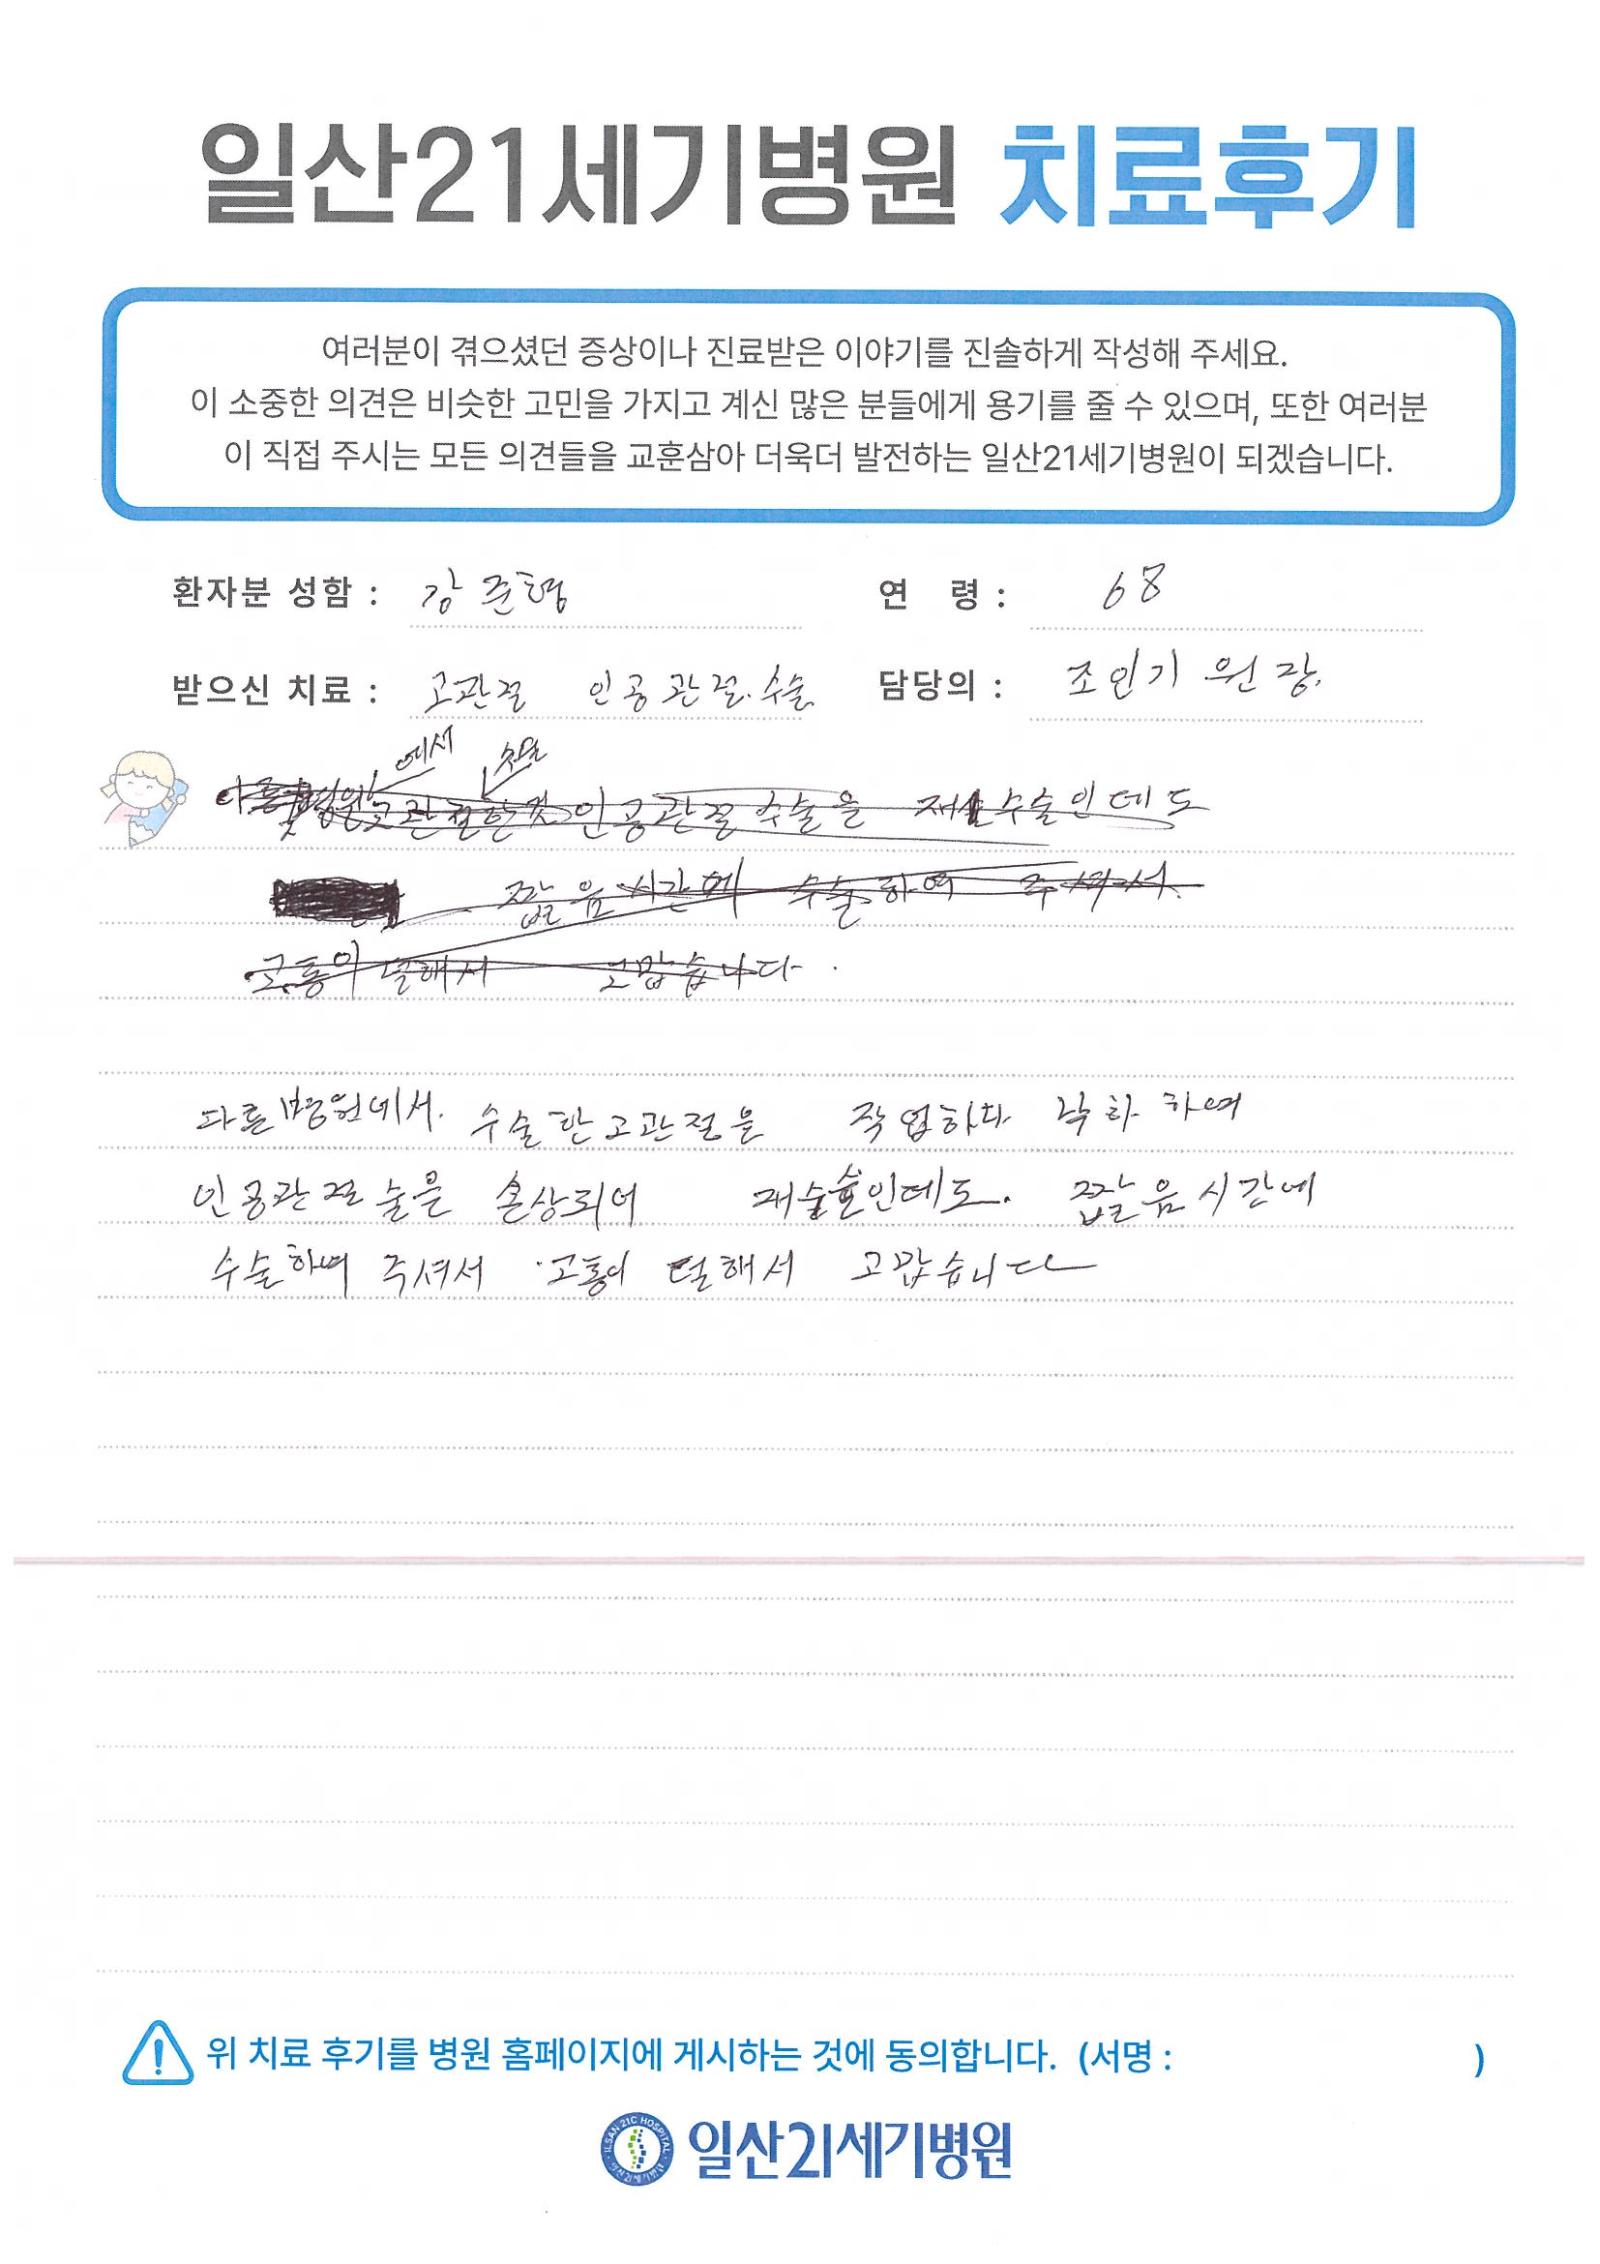 일산21세기병원 치료후기
여러분이 겪으셨던 증상이나 진료받은 이야기를 진솔하게 작성해 주세요.
이 소중한 의견은 비슷한 고민을 가지고 계신 많은 분들에게 용기를 줄 수 있으며, 또한 여러분
이 직접 주시는 모든 의견들을 교훈삼아 더욱더 발전하는 일산21세기병원이 되겠습니다.
환자분 성함 : 강준형 연 령 : 68
받으신 치료 : 고관절 인공관절.수술 담당의 : 조인기 원장.
에서 수술
병원 고관절한것 인공관절 수술을 재 수술인데도
짧음 시간에 수술하여 주셔서.
고통이 덜해서 고맙습니다.
다른병원에서. 수술한 고관절을 작업하다 낙하 하여
인공관절 술을 손상되어 재수술인데도. 짧음 시간에
수술하여 주셔서 고통이 덜해서 고맙습니다
위 치료 후기를 병원 홈페이지에 게시하는 것에 동의합니다. (서명 : )
ILSAN 21C HOSPITAL
일산21세기병원
일산21세기병원